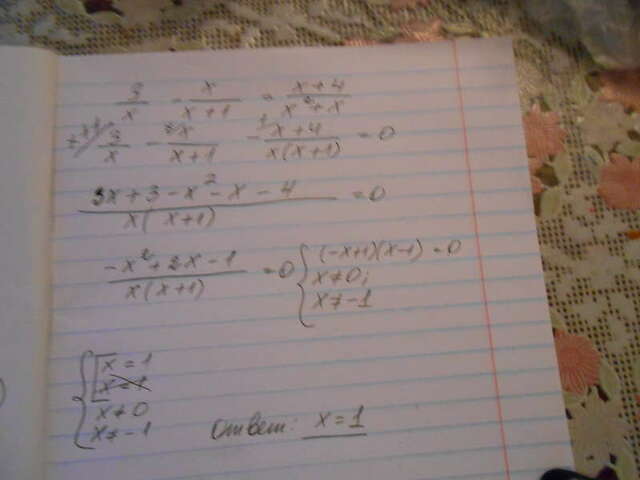 3/x - x/(x+1) = (x+4)/(x²+x)
x+1/ 3/x - x/ x/(x+1) - 1/ (x+4)/(x(x+1)) = 0
(3x+3-x²-x-4)/(x(x+1)) = 0
(-x²+2x-1)/(x(x+1)) = 0 { (-x+1)(x-1) = 0
x≠0;
x≠-1
{ [ x=1
x=1
x≠0
x≠-1
Ответ: x=1